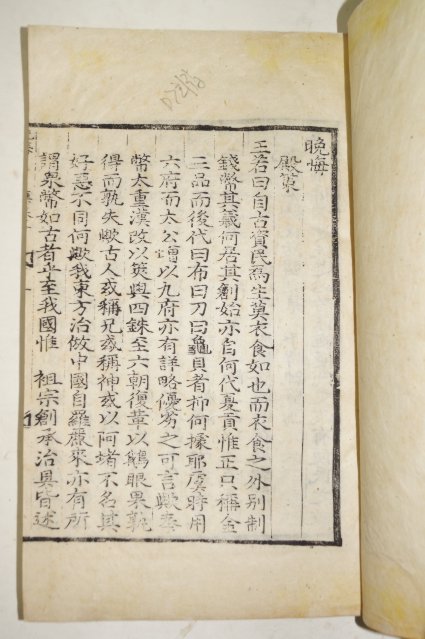 晩悔
殿策
王若曰自古資民爲生莫衣食如也而衣食之外別制
錢幣其義何居其創始亦自何代夏貢惟正只稱金
三品而後代曰布曰刀曰龜貝者抑何據耶虞時用
六府而太公增以九府亦有詳略優劣之可言歟秦
幣太重漢改以莢與四銖至六朝復葺以鵝眼果孰
得而孰失歟古人或稱兄或稱神或以阿堵不名其
好惡不同何歟我東方治倣中國自羅麗來亦有所
謂泉幣如古者乎至我國惟 祖宗創承治具皆述